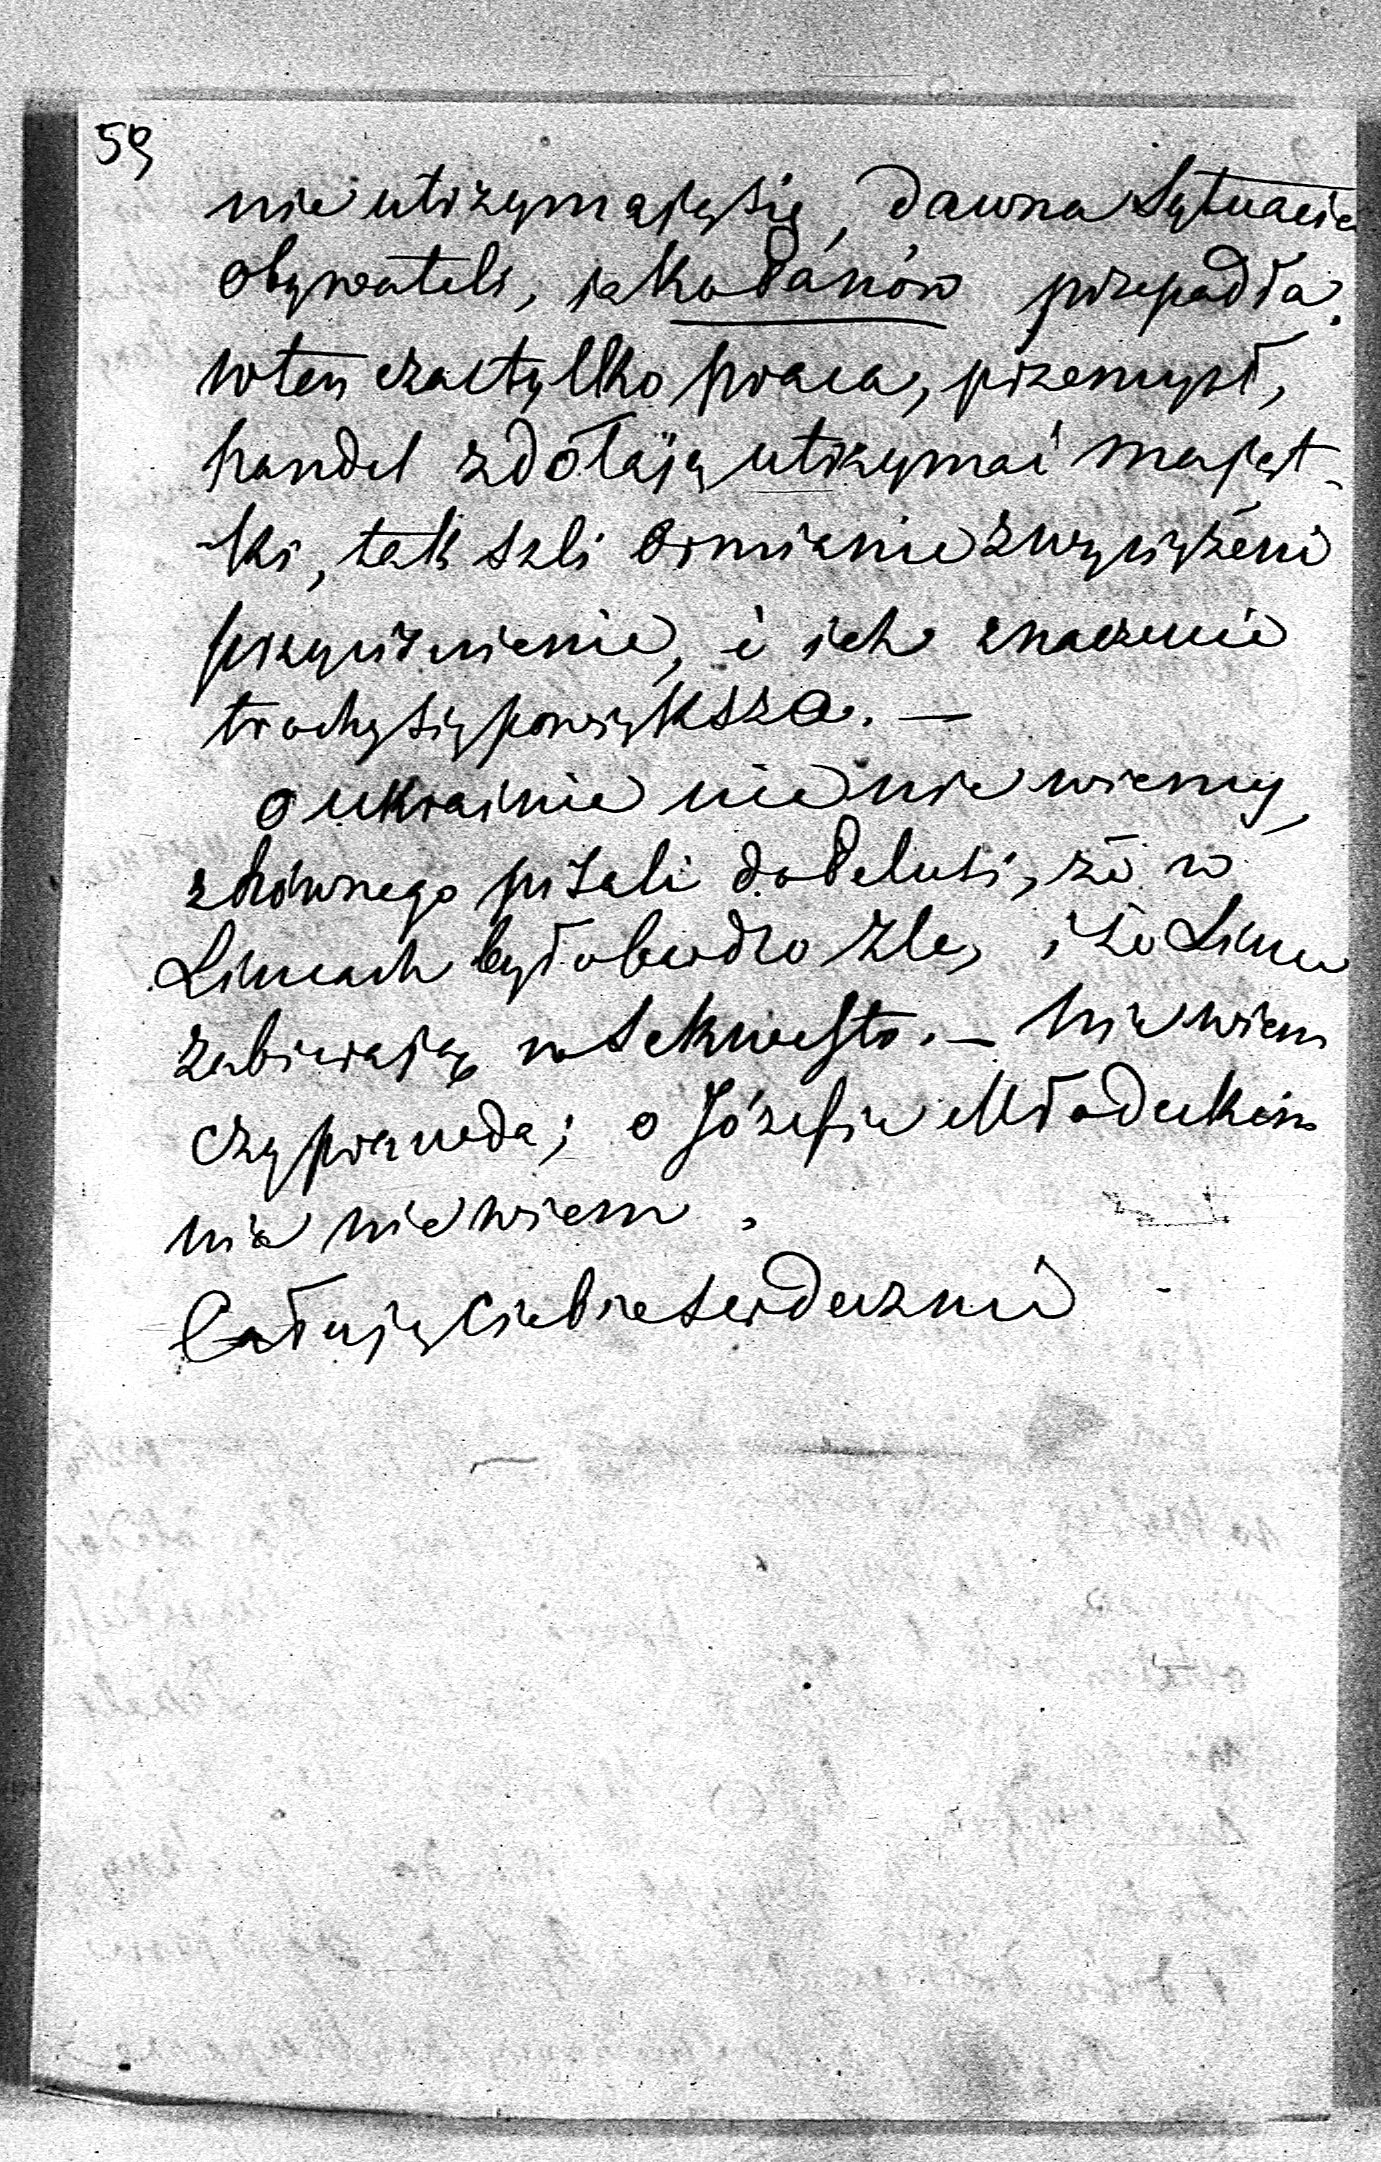 59
nie utrzymają się, dawna Sytuacia
obywateli, jako Panów przepadła,
w ten czas tylko praca, przemysł,
handel zdołają utrzymać mająt-
-ki, tak szli Ormianie zwyciężeni
i ich znaczenie
trochę się powiększa. —
o Ukrainie nic nie wiemy,
z Równego pisali do Pelusi, że w
Lincach było bardzo źle, i że Lince
zabierają w Sekwestr. — Nie wiem
czy prawda; o Józefie
nic nie wiem.
Całuję Ciebie Serdecznie